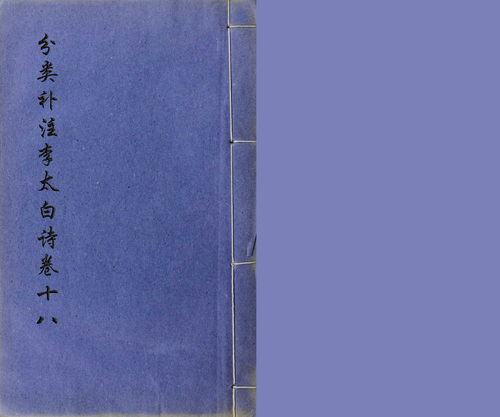 分类补注李太白诗卷十八